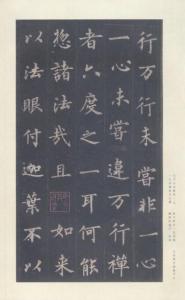 行万行未嘗非一心
一心未嘗違万行禅
者六度之一耳何能
惣諸法哉且如来
以法眼付迦葉不以